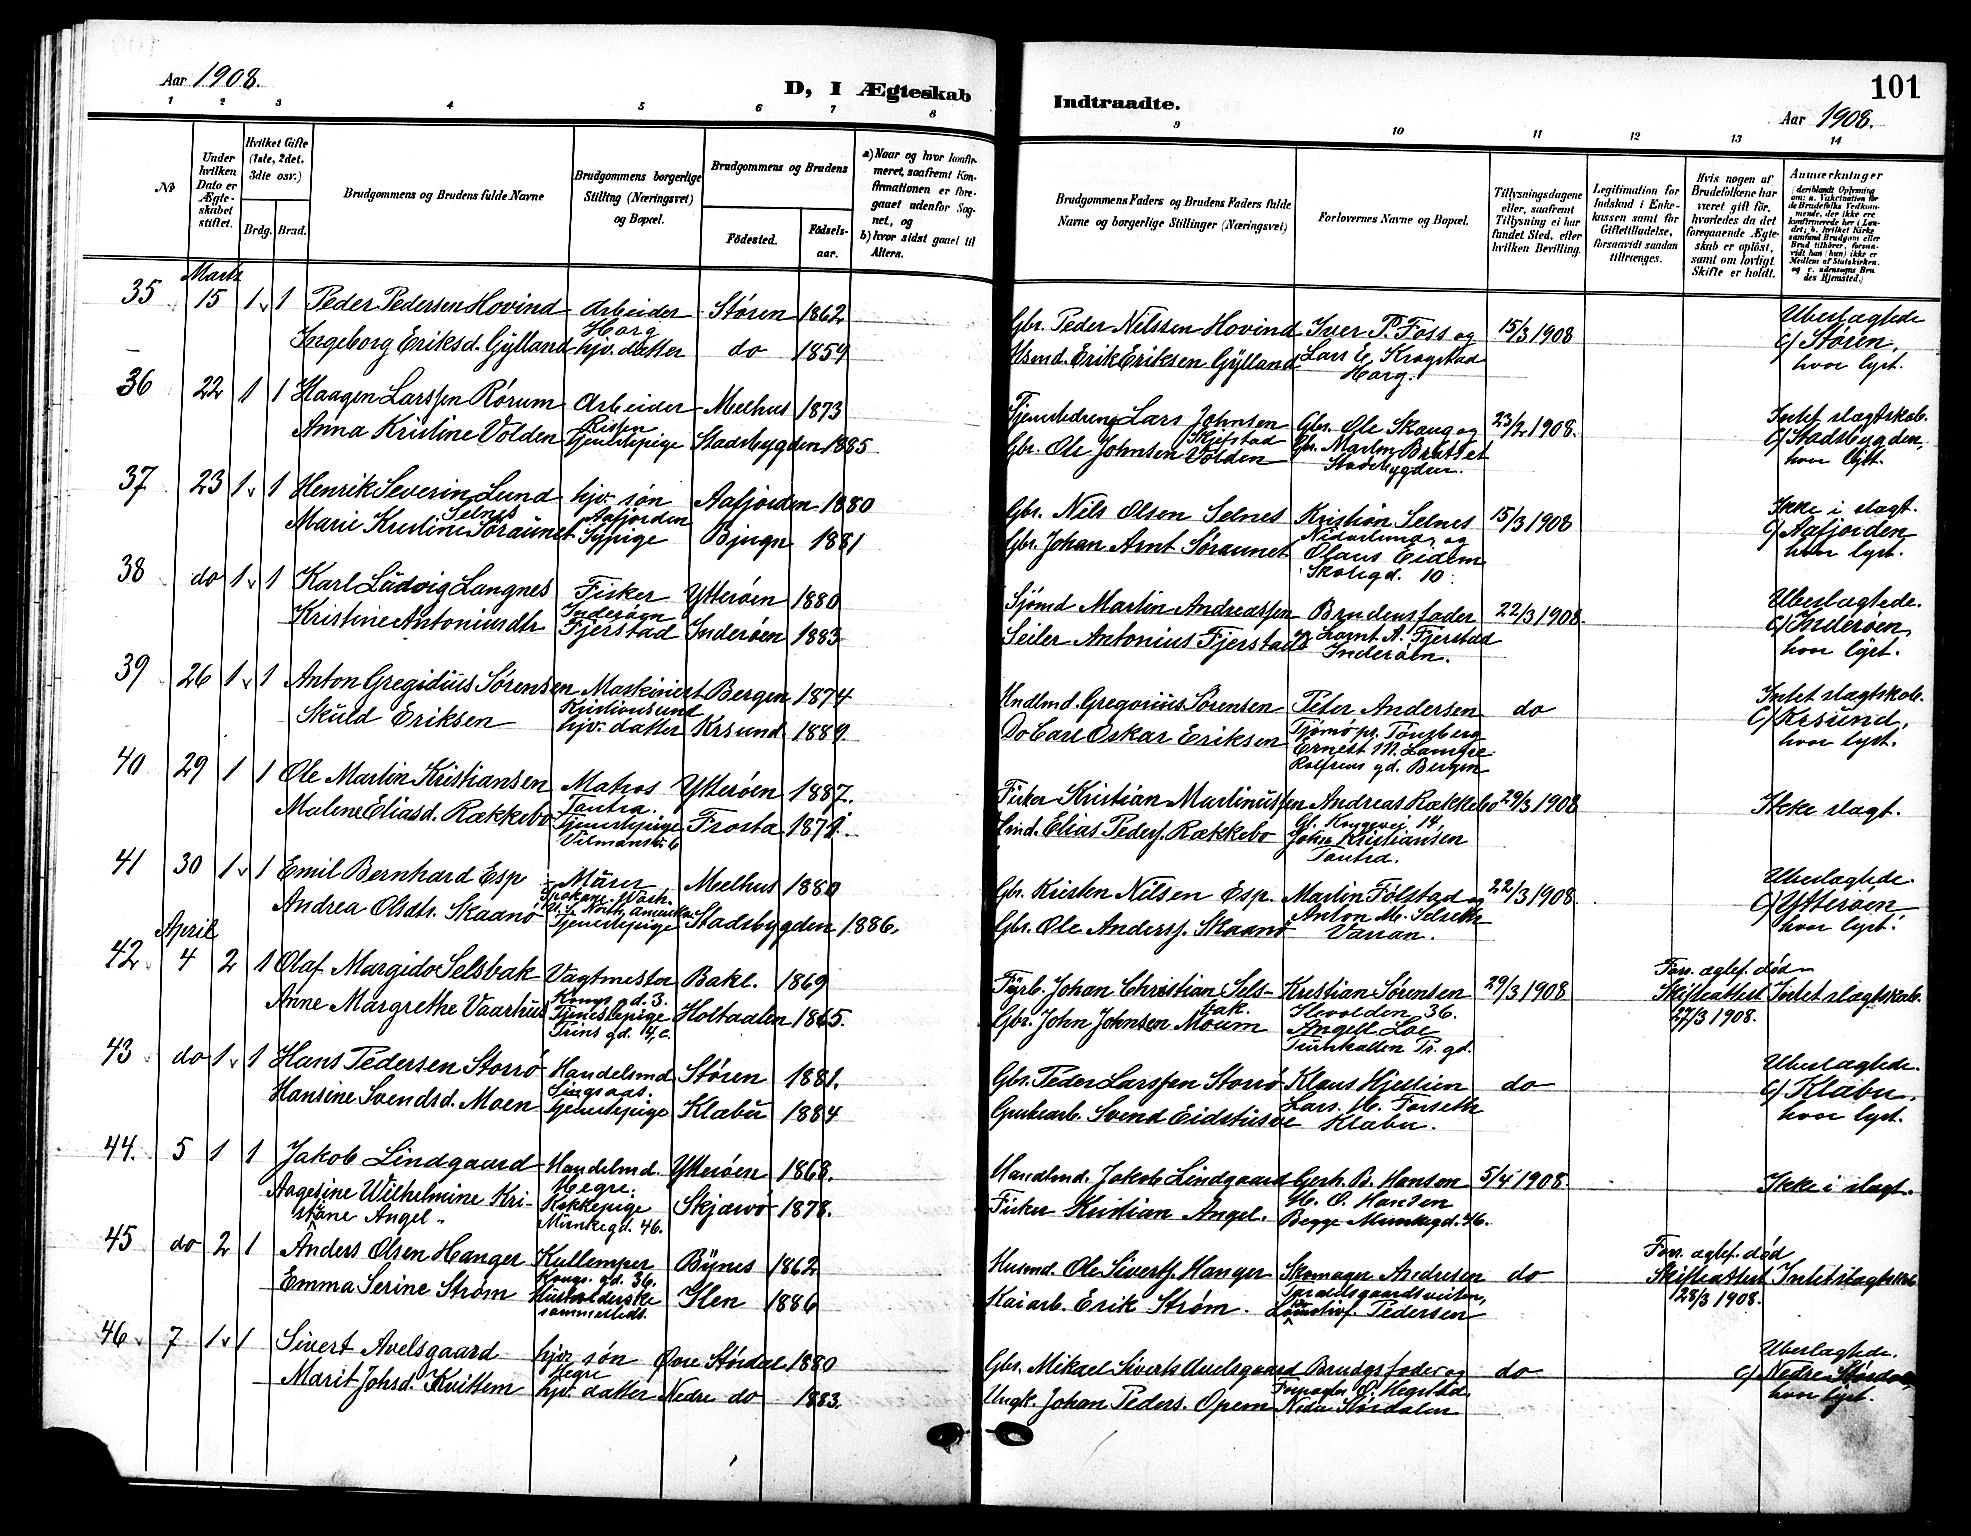 Aar 1908.
D, I Ægteskab
Indtraadte.
101
Aar 1908.
1 2 3 4 5 6 7 8
9 10 11 12 13 14
No
Under hvilken Dato er Ægteskabet stiftet.
Hvilket Gifte (1ste, 2det, 3dte osv.)
Brdg. Brud.
Brudgommens og Brudens fulde Navne
Brudgommens borgerlige Stilling (Næringsvei) og Bopæl.
Brudgommens og Brudens
Fødested.
Fødselsaar.
a) Naar og hvor konfirmeret, saafremt Konfirmationen er foregaaet udenfor Sognet, og
b) hvor sidst gaaet til Alters.
Brudgommens Faders og Brudens Faders fulde Navne og borgerlige Stillinger (Næringsvei)
Forlovernes Navne og Bopæl.
Tillysningsdagene eller, saafremt Tillysning ei har fundet Sted, efter hvilken Bevilling.
Legitimation for Indskud i Enkekassen samt for Giftetilladelse, forsaavidt saadan tiltrænges.
Hvis nogen af Brudefolkene har været gift før, hvorledes da det foregaaende Ægteskab er opløst, samt om lovligt Skifte er holdt.
Anmærkninger
Marts
35 15 1 v 1 Peder Pedersen Hovind Arbeider Støren 1862
Horg
Ingeborg Eriksd. Gylland hjv. datter do 1859
Gbr. Peder Nilssen Hovind Iver P. Foss og 15/3 1908
Husmd. Erik Eriksen Gylland Lars E. Krogstad
Horg.
Ubeslægtede
c/ Støren,
hvor lyst.
36 22 1 1 Haagen Larssen Rørum Arbeider Melhus 1873
Anna Kristine Volden Tjenestepige Stadsbygden 1885
Lars Johnsen Gbr. Ole Skaug og 23/2 1908.
Skjefstad
Gbr. Ole Johnsen Volden Gbr. Martin Brattet
Stadsbygden.
Intet slægtskab.
c/ Stadsbygden,
hvor lyst.
37 23 1 v 1 Henrik Severin Lund hjv. søn Aafjorden 1880
Selnes Aafjorden
Marie Kristine Søraunet Sypige Bjugn 1881
Gbr. Nils Olsen Selnes Kristian Selnes 15/3 1908
Nidarlund, og
Gbr. Johan Arnt Søraunet Olaus Eidem
Skolegd. 10.
Ikke i slægt.
c/ Aafjorden
hvor lyst.
38 do 1 v 1 Karl Ludvig Langnes Fisker Ytterøen 1880
Inderøen
Kristine Antoniusdtr Fjerstad Inderøen 1883
Sjømd Martin Andreassen Brudens fader 22/3 1908.
Seiler Antonius Fjerstad A. Fjerstad
Inderøen.
Ubeslægtede.
c/ Inderøen,
hvor lyst.
39 26 1 v 1 Anton Gregidius Sørensen Maskinist Bergen 1874
Kristiansund
Skuld Eriksen hjv. datter Krsund 1889.
Hndlmd. Gregorius Sørensen Peter Andersen do
Do Carl Oskar Eriksen Tjømø pr. Tønsberg
Ernest M.
gd. Bergen
Intet slægtskab.
c/ Krsund,
hvor lyst.
40 29 1 1 Ole Martin Kristiansen Matros Ytterøen 1887.
Tautra.
Malene Eliasd. Rækkebo Tjenestepige Frosta 1879.
Fisker Kristian Martinussen Andreas Rækkebo 29/3 1908
Gl. Kongevei 14
Elias Peders. Rækkebo Johan Kristiansen
Tautra.
Ikke slægt.
41 30 1 v 1 Emil Bernhard Esp Murer Melhus 1880
Spokane, Wash.
U. S. North Amerika
Andrea Olsdtr. Skaanø Tjenestepige Stadsbygden 1886.
Gbr. Kristen Nilsen Esp. Martin Følstad og 22/3 1908.
Gbr. Ole Anderss. Skaanø Anton M. Selseth
Vanvan.
Ubeslægtede.
c/ Ytterøen
hvor lyst.
April
42 4 2 1 Olaf Margido Selsbak Vagtmester Bakl. 1869
Kongs gd. 3.
Anne Margrethe Vaarhus Tjenestepige Holtaalen 1865.
Prins gd. 4, c.
Fyrb. Johan Christian Sels- Kristian Sørensen 29/3 1908
bak. Ilevolden 36.
Gbr. John Johnsen Moum Angell Loe
Turnhallen Pr. gd.
Forr. ægtef. død
Skifteattest
27/3 1908.
Intet slægtskab.
43 do 1 v 1 Hans Pedersen Storrø Handelsmd. Støren 1881.
Singsaas.
Hansine Svendsd. Moen Tjenestepige Klæbu 1884
Gbr. Peder Larssen Storrø Klaus Hjellien do
Grubearb. Svend Eidstusve Lars. M. Forseth
Klæbu.
Ubeslægtede.
c/ Klæbu,
hvor lyst.
44. 5 1 1 Jakob Lindgaard Handelmd. Ytterøen 1868.
Hegre.
Aagesine Wilhelmine Kri- Kokkepige Skjærvø 1878.
stiane Angel Munkegd. 46.
Handlmd. Jakob Lindgaard Gerh. B. Hansen 5/4 1908
M. O. Hansen
Fisker Kristian Angel. Begge Munkegd. 46.
Ikke i slægt.
45 do 2 1 Anders Olsen Hanger Kullemper Bynes 1862
Kongs. gd. 36.
Emma Serine Strøm Husholderske Ilen 1886
sammesteds.
Husmd. Ole Siverts. Hanger Skomager Andresen do
Kaiarb. Erik Strøm. Pedersen
Forr. ægtef. død
Skifteattest
28/3 1908.
Intet slægtskab
46 7 1 v 1 Sivert Avelsgaard hjv. søn Øvre Stördal 1880
Hegre
Marit Johsd. Kvittem hjv. datter Nedre do 1883.
Gbr. Mikael Siverts Avelsgaard Brudgs fader og do
Ungk. Johan Peders. Opem O. Hegstad
Nedre Stördalen
Ubeslægtede.
c/ Nedre Stördal,
hvor lyst.